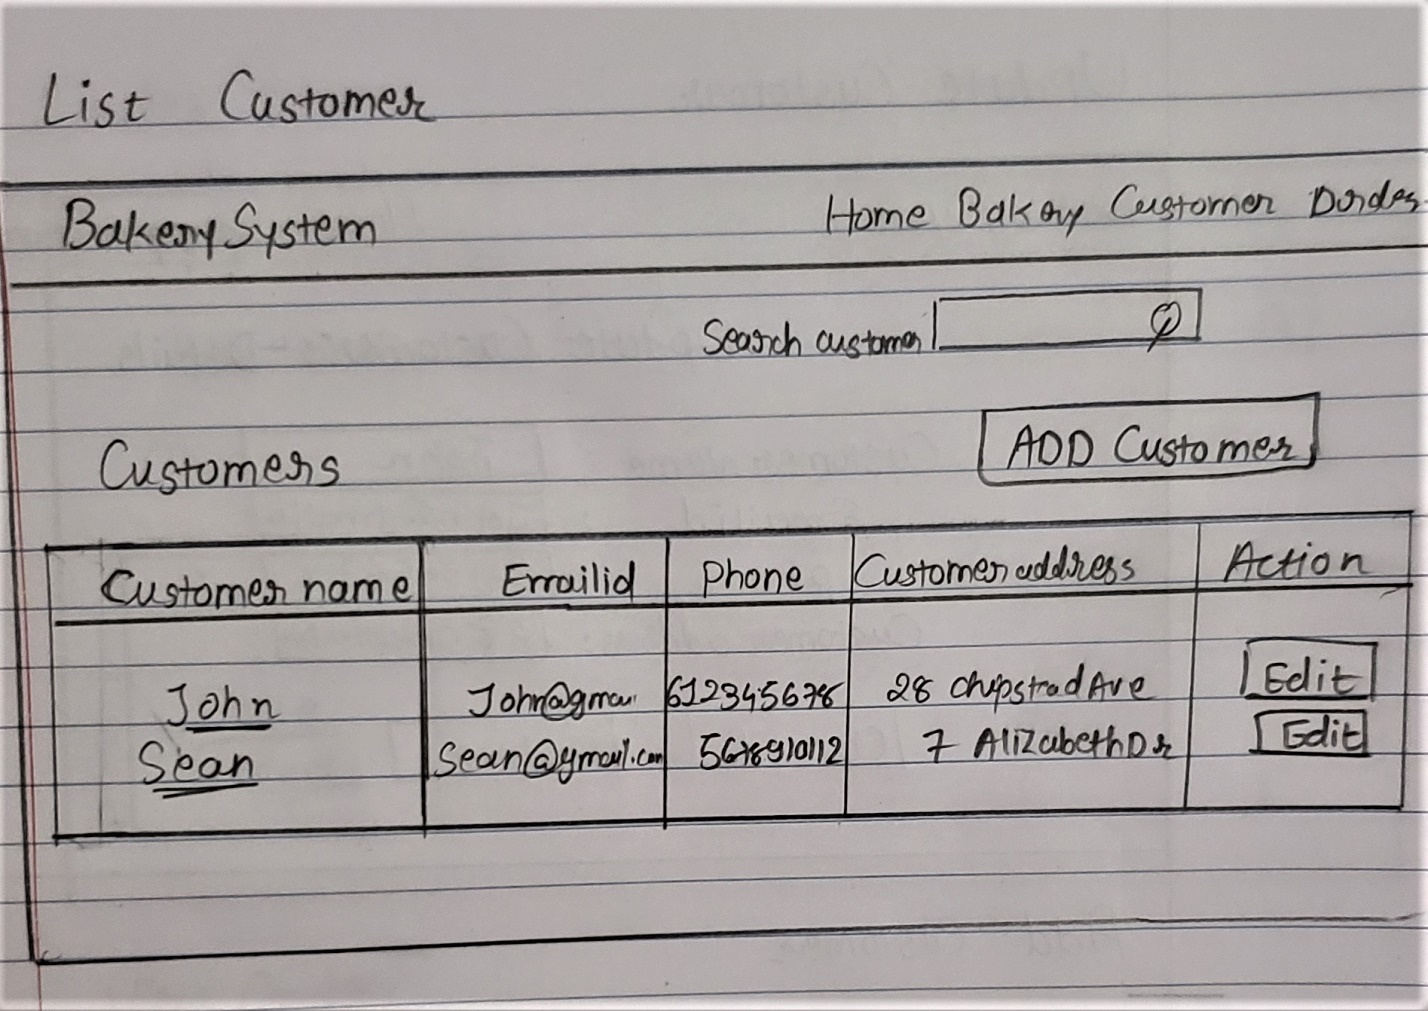 List Customer
Bakery System Home Bakery Customer
Search customer
Customers ADD Customer
Customer name Emailid Phone Customer address Action
John John@gmai 612345678 28 chepstrad Ave Edit
Sean Sean@gmail.com 7 Alizabeth Dr Edit